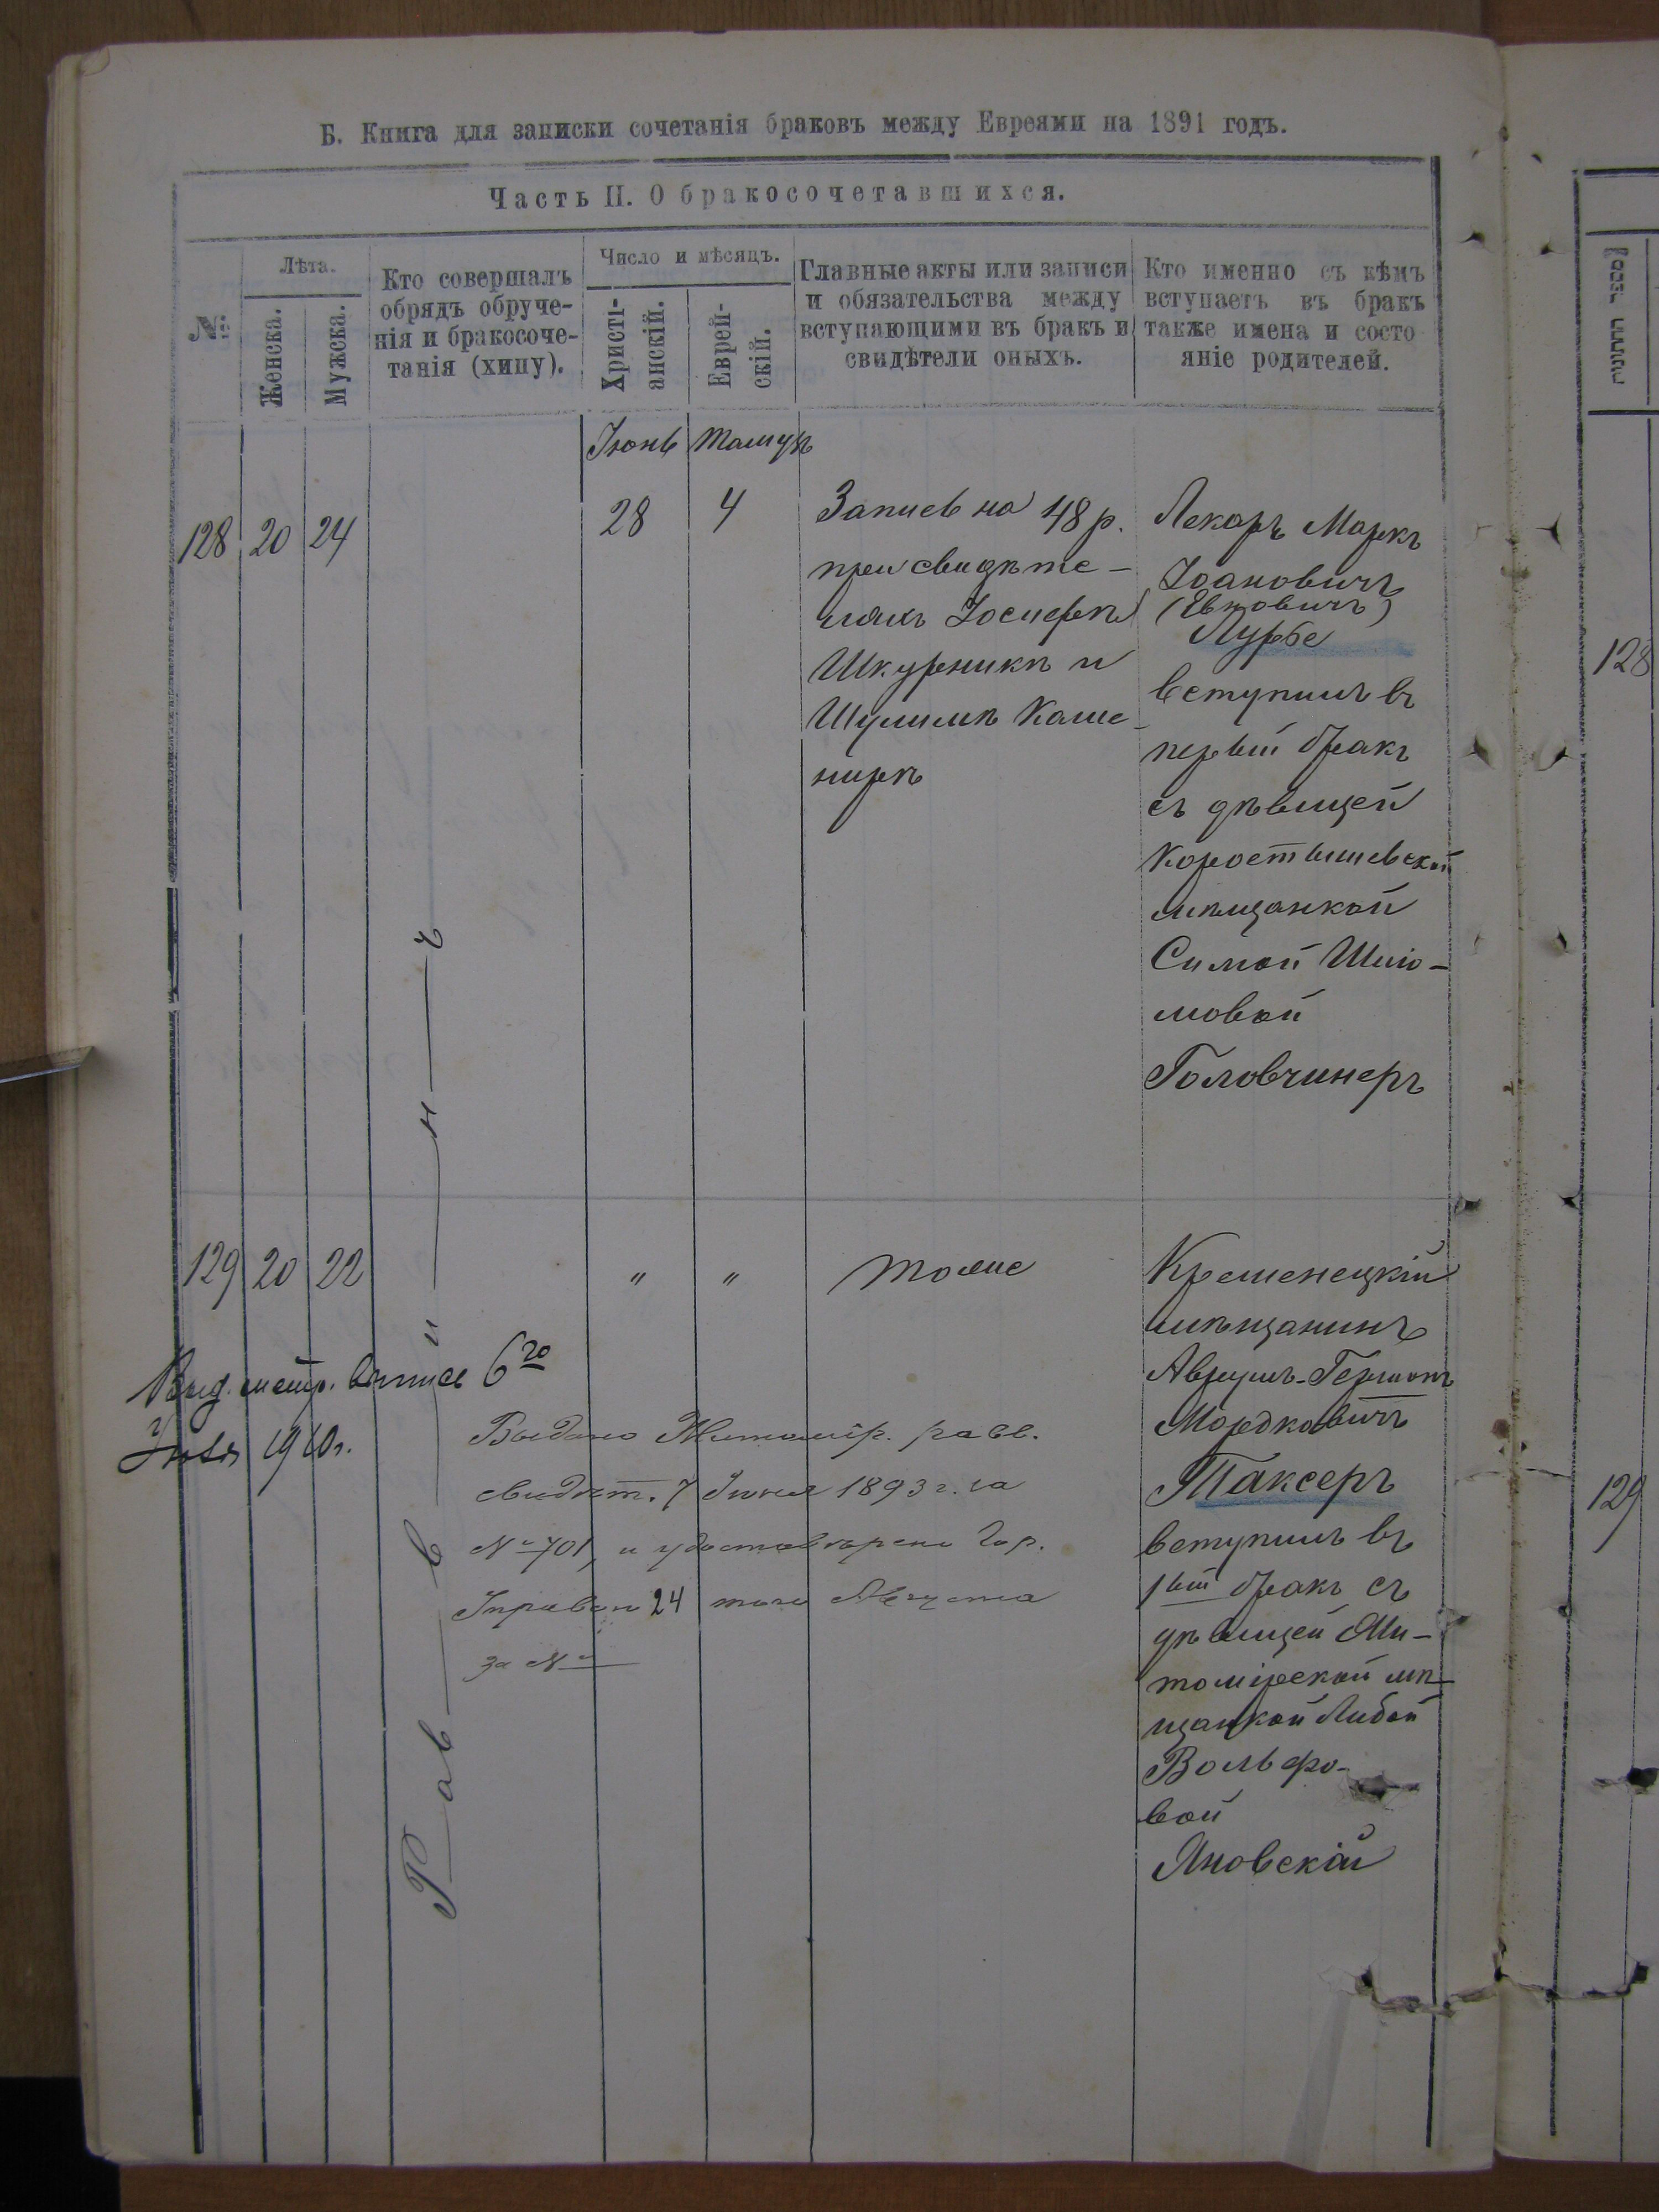 Б. Книга для записки сочетанія браковъ между Евреями на 1891 годъ.
Часть II. О бракосочетавшихся.
№
Лѣта.
Женска.
Мужска.
Кто совершалъ
обрядъ обруче-
нія и бракосоче-
танія (хипу).
Число и мѣсяцъ.
Христі-
анскій.
Еврей-
скій.
Главные акты или записи
и обязательства между
вступающими въ бракъ и
свидѣтели оныхъ.
Кто именно съ кѣмъ
вступаетъ въ бракъ
также имена и состо
яніе родителей.
Іюнь
Тамузъ
128
20
24
28
4
Запись на 48 р.
при свидѣте-
ляхъ Іосифѣ
Шкурникѣ и
Шулимѣ Каше-
нирѣ
Лекарь Маркъ
Іоановичъ
(Евновичъ)
Лурье
вступилъ въ
первый бракъ
съ дѣвицей
Коростышевской
мѣщанкой
Симой Шлio-
мовой
Головчинеръ
Раввинъ
129
20
22
"
"
тоже
Кременецкій
мѣщанинъ
Аврумъ-Гершонъ
Мордковичъ
Таксеръ
вступилъ въ
1ый бракъ съ
дѣвицей Жи-
томірской мѣ-
щанкой Либой
Вольфо-
вой
Яновскій
Выд. метр. выпись 6го
1910 г.
Выдано Житомір. равв.
свидѣт. 7 Іюня 1893 г. за
№ 701, и удостовѣрено Гор.
Управой 24 того Августа
за №
128
129